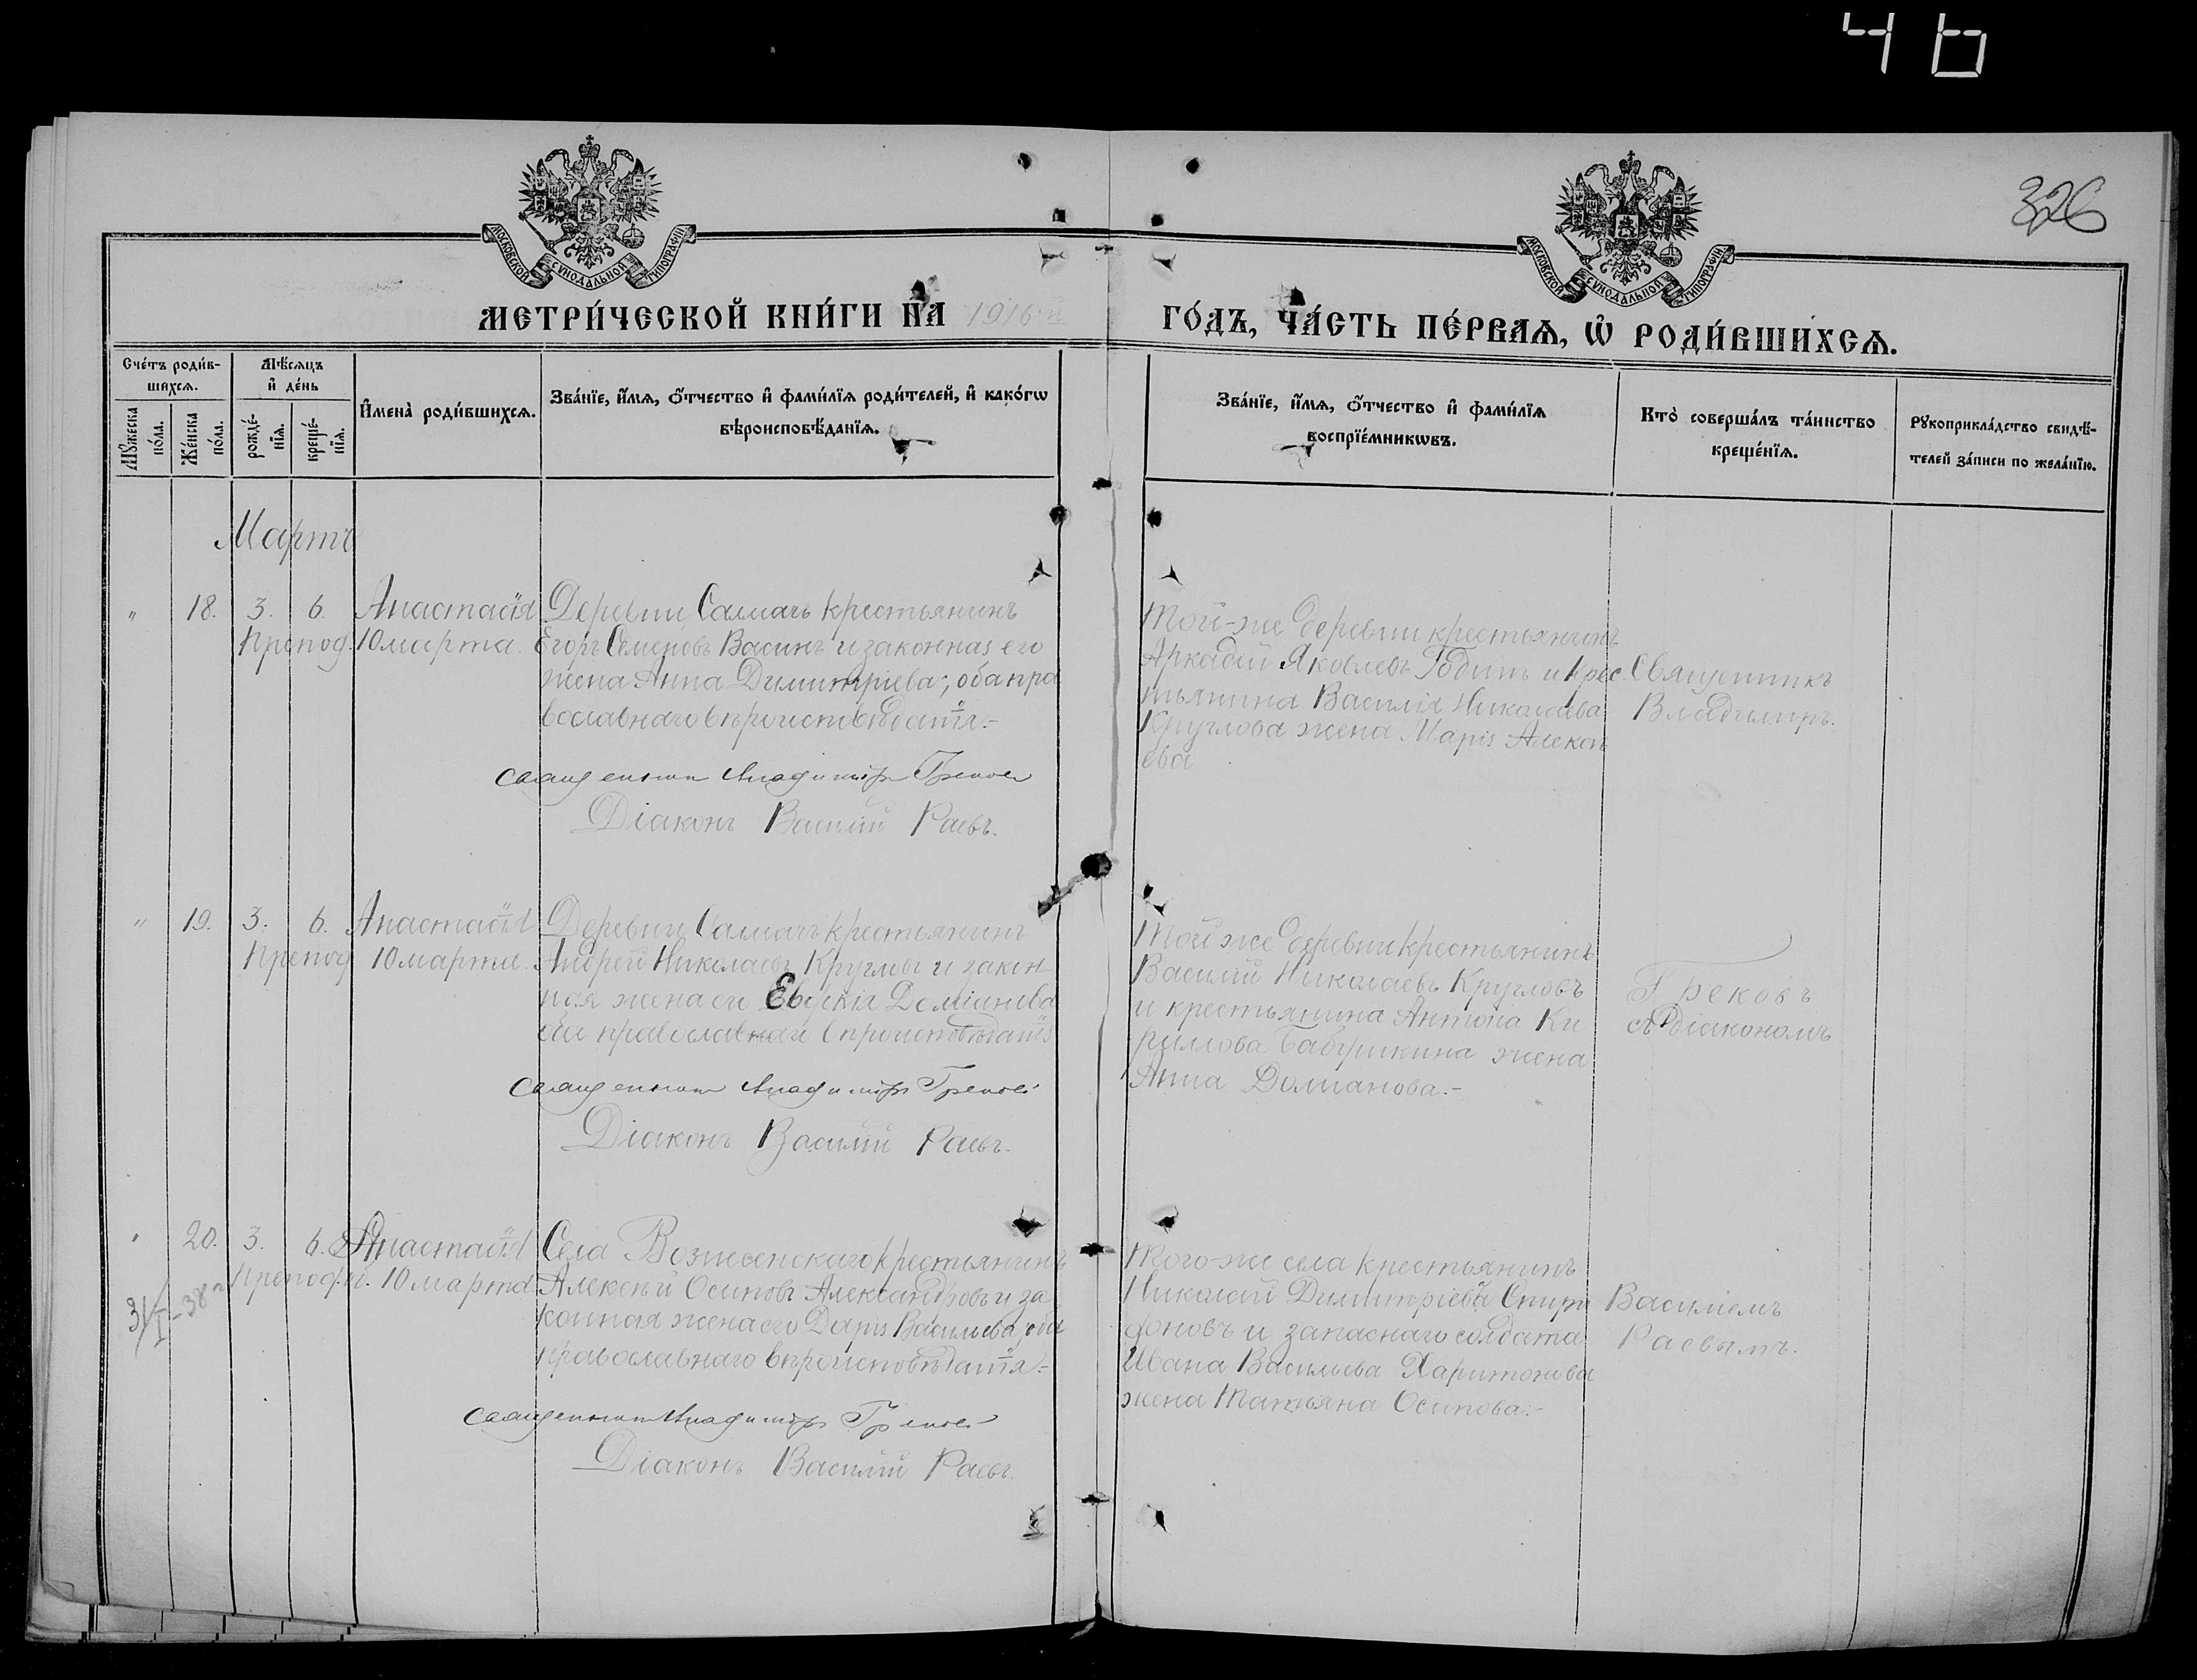 46
326
МОСКОВСКОЙ СѴНОДАЛЬНОЙ ТИПОГРАФІИ
МОСКОВСКОЙ СѴНОДАЛЬНОЙ ТИПОГРАФІИ
МЕТРИ́ЧЕСКОЙ КНИ́ГИ НА 1916-й ГО́ДЪ, ЧА́СТЬ ПЕ́РВАѦ, Ѡ РОДИ́ВШИХСѦ.
Сче́тъ роди́в-
шихсѧ.
Мѣ́сѧцъ
и де́нь
Мꙋжеска
по́ла.
Же́нска
по́ла.
рожде́-
нїѧ.
креще́-
нїѧ.
Имена̀ роди́вшихсѧ.
Зва́нїе, и́мѧ, ѻ́тчество и фами́лїѧ роди́телей, и како́гѡ
вѣроисповѣ́данїѧ.
Зва́нїе, и́мѧ, ѻ́тчество и фами́лїѧ
воспрїе́мникѡвъ.
Кто̀ соверша́лъ та́инство
креще́нїѧ.
Рꙋкоприкла́дство свидѣ́-
телей за́писи по жела́нїю.
Мартъ
" 18. 3. 6. Анастасія
Препод. 10 марта.
Деревни Салмачъ крестьянинъ
Егоръ Семеновъ Васинъ и законная его
жена Анна Димитріева, оба пра
вославнаго вѣроисповѣданія.-
священник Владимір Греков
Діаконъ Василій Раевъ.
Той-же деревни крестьянинъ
Аркадій Яковлевъ и крес
тьянина Василія Николаева
Круглова жена Марія Алексѣ
ева
Священникъ
Владиміръ.
" 19. 3. 6. Анастасія
Препод 10 марта.
Деревни Салмачъ крестьянинъ
Андрей Николаевъ Кругловъ и закон
ная жена его Евдокія Доміанова
оба православнаго вѣроисповѣданія
священник Владимір Греков
Діаконъ Василій Раевъ.
Той же деревни крестьянинъ
Василій Николаевъ Кругловъ
и крестьянина Антонія Ки
риллова Бабушкина жена
Анна Доміанова.-
Грековъ
съ діакономъ
" 20. 3. 6. Анастасія
Препод. 10 марта
31/I-38 г.
Села Вознесенскаго крестьянинъ
Алексѣй Осиповъ Александровъ и за
конная жена его Дарія Васильева, оба
православнаго вѣроисповѣданія.-
священник Владимір Греков
Діаконъ Василій Раевъ.
Того-же села крестьянинъ
Николай Димитріевъ Спири
доновъ и запаснаго солдата
Ивана Васильева Харитонова
жена Татьяна Осипова.-
Василіемъ
Раевымъ.